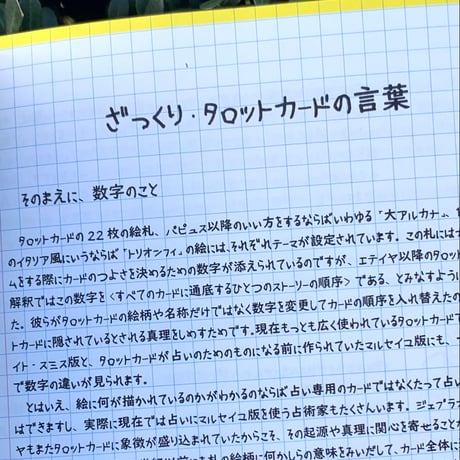 ざっくり・タロットカードの言葉
そのまえに、数字のこと
タロットカードの22枚の絵札、パピュス以降のいい方をするならばいわゆる「大アルカナ」、
のイタリア風にいうならば「トリオンフィ」の絵には、それぞれテーマが設定されています。この札には
ムをする際にカードのつよさを決めるための数字が添えられているのですが、エテイヤ以降のタロット
解釈ではこの数字を〈すべてのカードに通底するひとつのストーリーの順序〉である、とみなすように
た。彼らがタロットカードの絵柄や名称だけではなく数字を変更してカードの順序を入れ替えたの
トカードに隠されているとされる真理をしめすためです。現在もっとも広く使われているタロットカード
イト・スミス版と、タロットカードが占いのためのものになる前に作られていたマルセイユ版にも、
で数字の違いが見られます。
とはいえ、絵に何が描かれているのかがわかるのならば占い専用のカードではなくたって占い
はできますし、実際に現在では占いにマルセイユ版を使う占術家もたくさんいます。ジェブラ
ヤもまたタロットカードに象徴が盛り込まれていたからこそ、その起源や真理に関心を寄せること
以前にも札の絵柄に何かしらの意味をみいだして、カード全体に